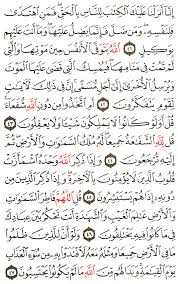 إِنَّا أَنزَلْنَا عَلَيْكَ الْكِتَابَ لِلنَّاسِ بِالْحَقِّ فَمَنِ اهْتَدَىٰ
فَلِنَفْسِهِ وَمَن ضَلَّ فَإِنَّمَا يَضِلُّ عَلَيْهَا وَمَا أَنتَ عَلَيْهِم
بِوَكِيلٍ ٤١ اللَّهُ يَتَوَفَّى الْأَنفُسَ حِينَ مَوْتِهَا وَالَّتِي
لَمْ تَمُتْ فِي مَنَامِهَا فَيُمْسِكُ الَّتِي قَضَىٰ عَلَيْهَا الْمَوْتَ
وَيُرْسِلُ الْأُخْرَىٰ إِلَىٰ أَجَلٍ مُّسَمًّى إِنَّ فِي ذَٰلِكَ لَآيَاتٍ
لِّقَوْمٍ يَتَفَكَّرُونَ ٤٢ أَمِ اتَّخَذُوا مِن دُونِ اللَّهِ شُفَعَاءَ
قُلْ أَوَلَوْ كَانُوا لَا يَمْلِكُونَ شَيْئًا وَلَا يَعْقِلُونَ ٤٣
قُل لِّلَّهِ الشَّفَاعَةُ جَمِيعًا لَّهُ مُلْكُ السَّمَاوَاتِ وَالْأَرْضِ ثُمَّ
إِلَيْهِ تُرْجَعُونَ ٤٤ وَإِذَا ذُكِرَ اللَّهُ وَحْدَهُ اشْمَأَزَّتْ
قُلُوبُ الَّذِينَ لَا يُؤْمِنُونَ بِالْآخِرَةِ وَإِذَا ذُكِرَ الَّذِينَ مِن
دُونِهِ إِذَا هُمْ يَسْتَبْشِرُونَ ٤٥ قُلِ اللَّهُمَّ فَاطِرَ السَّمَاوَاتِ
وَالْأَرْضِ عَالِمَ الْغَيْبِ وَالشَّهَادَةِ أَنتَ تَحْكُمُ بَيْنَ عِبَادِكَ
فِي مَا كَانُوا فِيهِ يَخْتَلِفُونَ ٤٦ وَلَوْ أَنَّ لِلَّذِينَ ظَلَمُوا
مَا فِي الْأَرْضِ جَمِيعًا وَمِثْلَهُ مَعَهُ لَافْتَدَوْا بِهِ مِن سُوءِ الْعَذَابِ
يَوْمَ الْقِيَامَةِ وَبَدَا لَهُم مِّنَ اللَّهِ مَا لَمْ يَكُونُوا يَحْتَسِبُونَ ٤٧